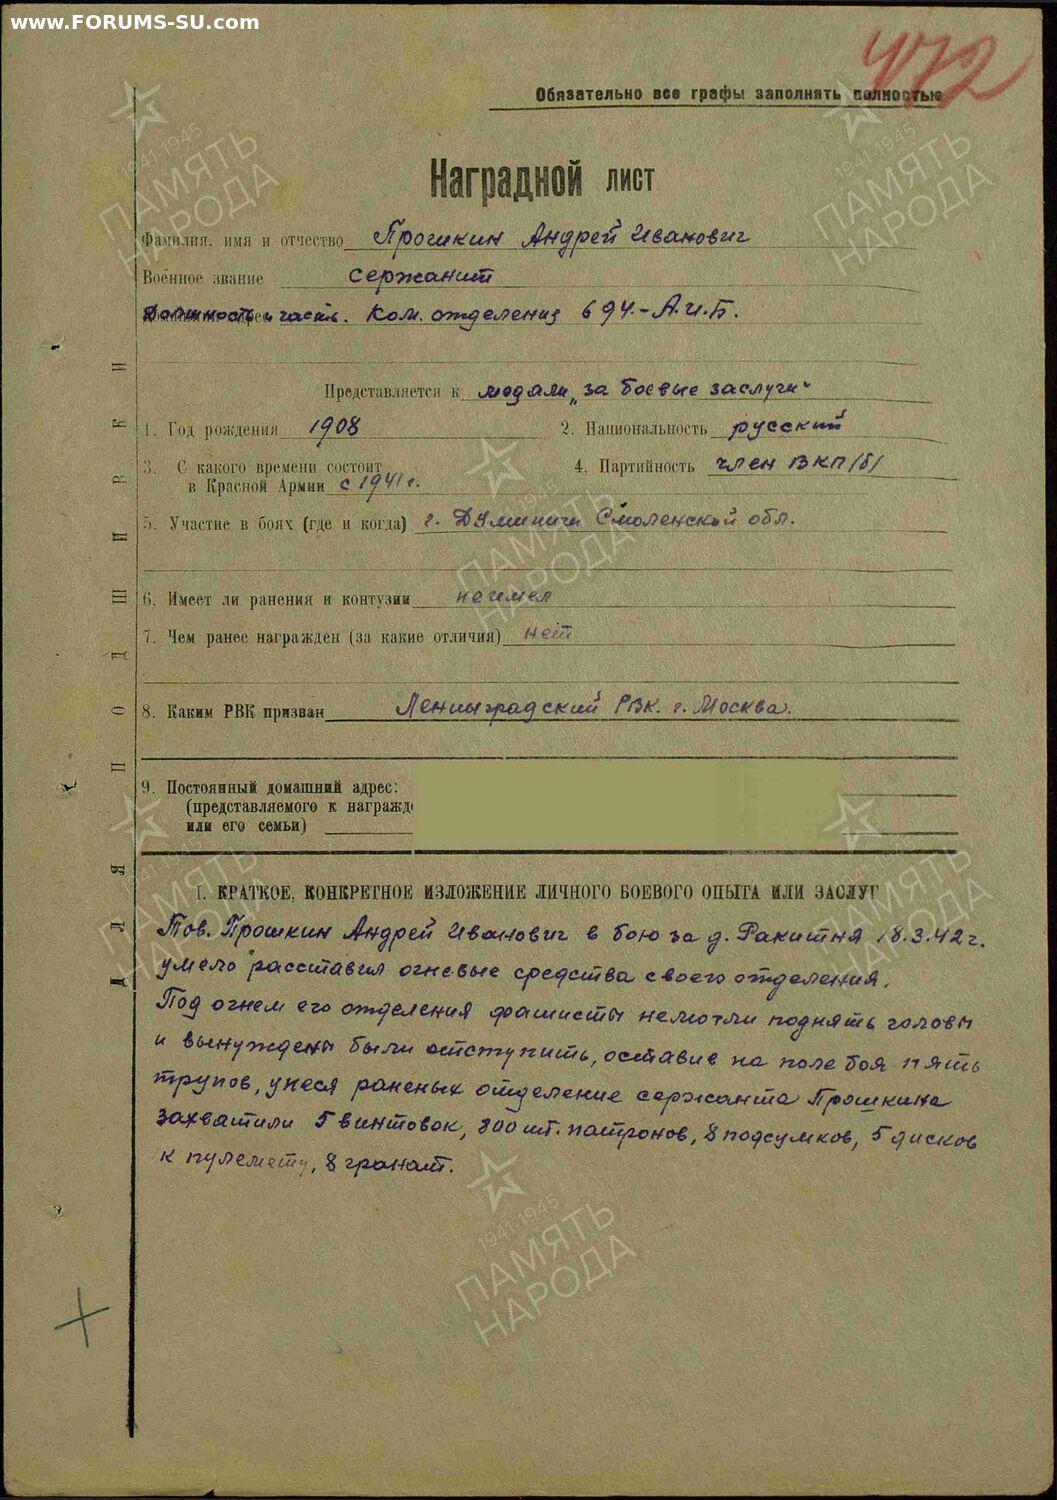 www.FORUMS-SU.com
472
Обязательно все графы заполнять полностью
Наградной лист
Фамилия, имя и отчество Прошкин Андрей Иванович
Военное звание сержант
Должность и часть. Ком. отделения 694.-А.И.Б.
Представляется к медали „за боевые заслуги"
1. Год рождения 1908 2. Национальность русский
3. С какого времени состоит 4. Партийность член ВКП/б/
в Красной Армии с 1941 г.
5. Участие в боях (где и когда) г. Думиничи Смоленской обл.
6. Имеет ли ранения и контузии не имел
7. Чем ранее награжден (за какие отличия) нет
8. Каким РВК призван Ленинградский РВК. г. Москва.
9. Постоянный домашний адрес:
(представляемого к награжд
или его семьи)
I. КРАТКОЕ, КОНКРЕТНОЕ ИЗЛОЖЕНИЕ ЛИЧНОГО БОЕВОГО ОПЫТА ИЛИ ЗАСЛУГ
Тов. Прошкин Андрей Иванович в бою за д. Ракитня 18.3.42г.
умело расставил огневые средства своего отделения.
Под огнем его отделения фашисты немогли поднять головы
и вынуждены были отступить, оставив на поле боя пять
трупов, унеся раненых отделение сержанта Прошкина
захватили 5 винтовок, 800 шт. патронов, 8 подсумков, 5 дисков
к пулемету, 8 гранат.
ДЛЯ ПОДШИВКИ
1941-1945
ПАМЯТЬ
НАРОДА
1941-1945
ПАМЯТЬ
НАРОДА
1941-1945
ПАМЯТЬ
НАРОДА
1941-1945
ПАМЯТЬ
НАРОДА
1941-1945
ПАМЯТЬ
НАРОДА
1941-1945
ПАМЯТЬ
НАРОДА